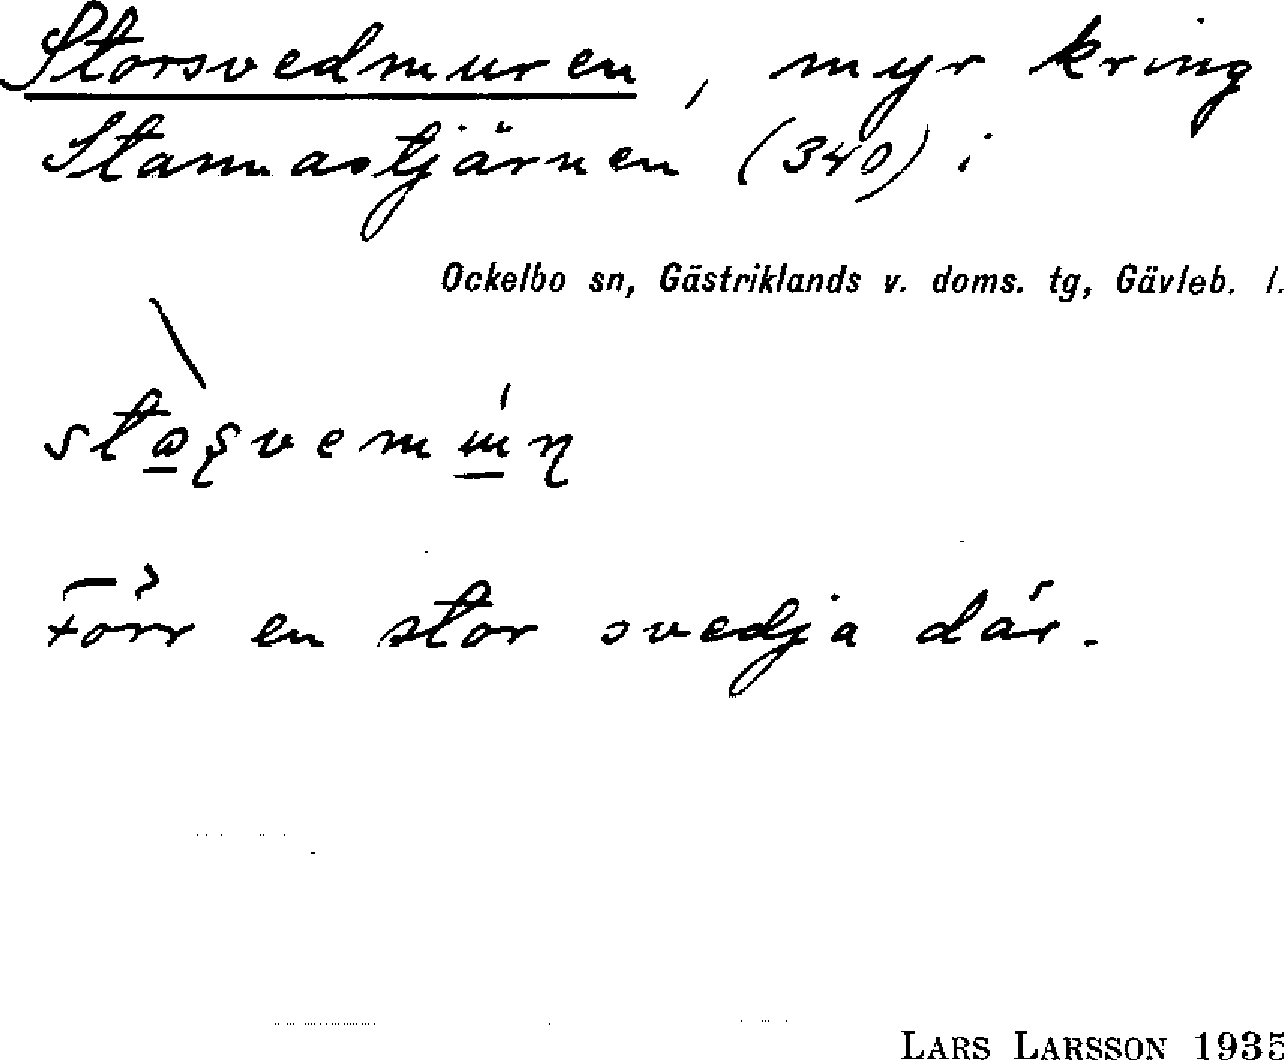 Storsvedmuren, myr kring
Stannastjärnen (340) i
Ockelbo sn, Gästriklands v. doms. tg, Gävleb. l.
Förr en stor svedja där.
LARS LARSSON 1935